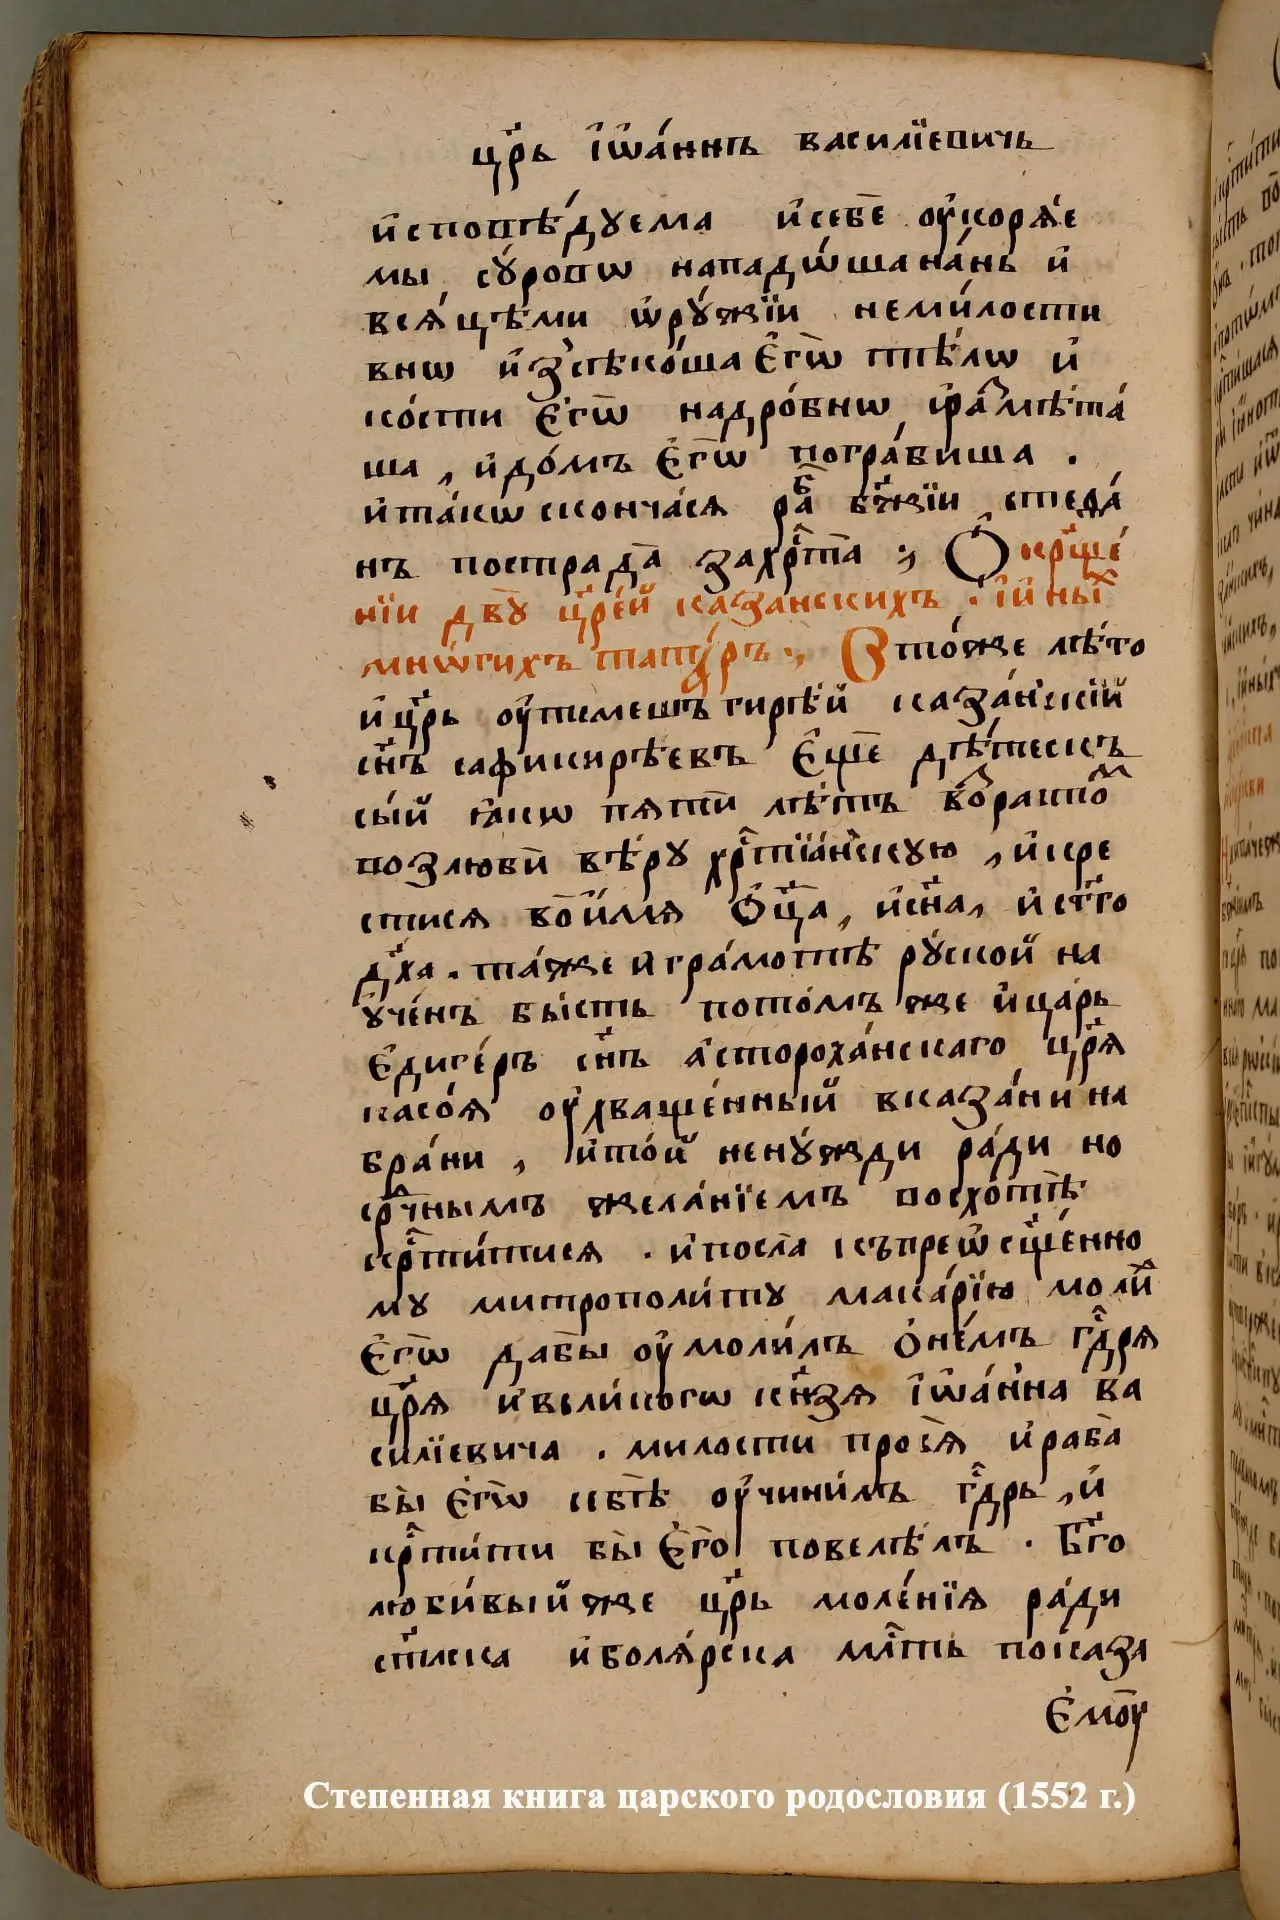 цр҃ь іѡ҆а́ннъ василїевичь
и҆сповѣ́дуема и҆себѐ ѹ҆корѧ́е
мы су́ровѡ нападо́ша на́нь и҆
всѧ́цѣми ѡ҆ру́жїи неми́лости
внѡ и҆зсѣко́ша є҆гѡ̀ тѣ́лѡ и҆
ко́сти є҆гѡ̀ надро́бнѡ ра́змѣта́
ша, и҆до́мъ є҆гѡ̀ погра́биша .
и҆та́кѡ сконча́сѧ ра́бъ бж҃їи стефа́
нъ пострада̀ захр҇та̀ ; Ѻ кр҃ще́
нїи двꙋ̀ цр҃е́й казанскихъ . и҆іны́х
мнѡ́гихъ тата́ръ ; Вто́же лѣ́то
и҆цр҃ь ѹ҆тимешъ гирѣ́й каза́нскїй
сн҃ъ сафикирѣевъ є҆щѐ дѣ́тескъ
сы́й ꙗкѡ пѧтѝ лѣ́тъ во́зрасто́м
возлюбѝ вѣ́ру хр҇тїа́нскую, и҆кре
стисѧ во̀и҆мѧ ѻ҆ц҃а, и҆сн҃а, и҆ст҃го
дх҃а . та́же и҆гра́мотѣ ру́ской на
уче́нъ бы́сть пото́мъ же и҆ца́рь
є҆диге́ръ сн҃ъ а҆сторохáнскаго цр҃ѧ
касо́ѧ ѹ҆хваще́нный вказа́ни на
бра́ни, и҆то́й нену́жди ра́ди но
ср҃чнымъ жела́нїемъ восхотѣ̀
кр҇ти́тисѧ . и҆посла̀ къпрео҆сщ҃е́нно
му митрополи́ту мака́рїю моли́
є҆гѡ̀ дабы̀ ѹ҆моли́лъ ѻ҆не́мъ гд҇рѧ
цр҃ѧ и҆вели́когѡ кн҃зѧ і҆ѡа́нна ва
силїевича . милости просѧ̀ и҆раба̀
бы̀ є҆гѡ̀ себѣ̀ ѹ҆чини́лъ гд҇рь, и҆
кр҇ти́ти бы̀ є҆го̀ повелѣ́лъ . Бг҃о
люби́вый же цр҃ь моле́нїѧ ра́ди
ст҃лска и҆болѧ́рска мл҇ть показа
є҆мѹ̀
Степенная книга царского родословия (1552 г.)